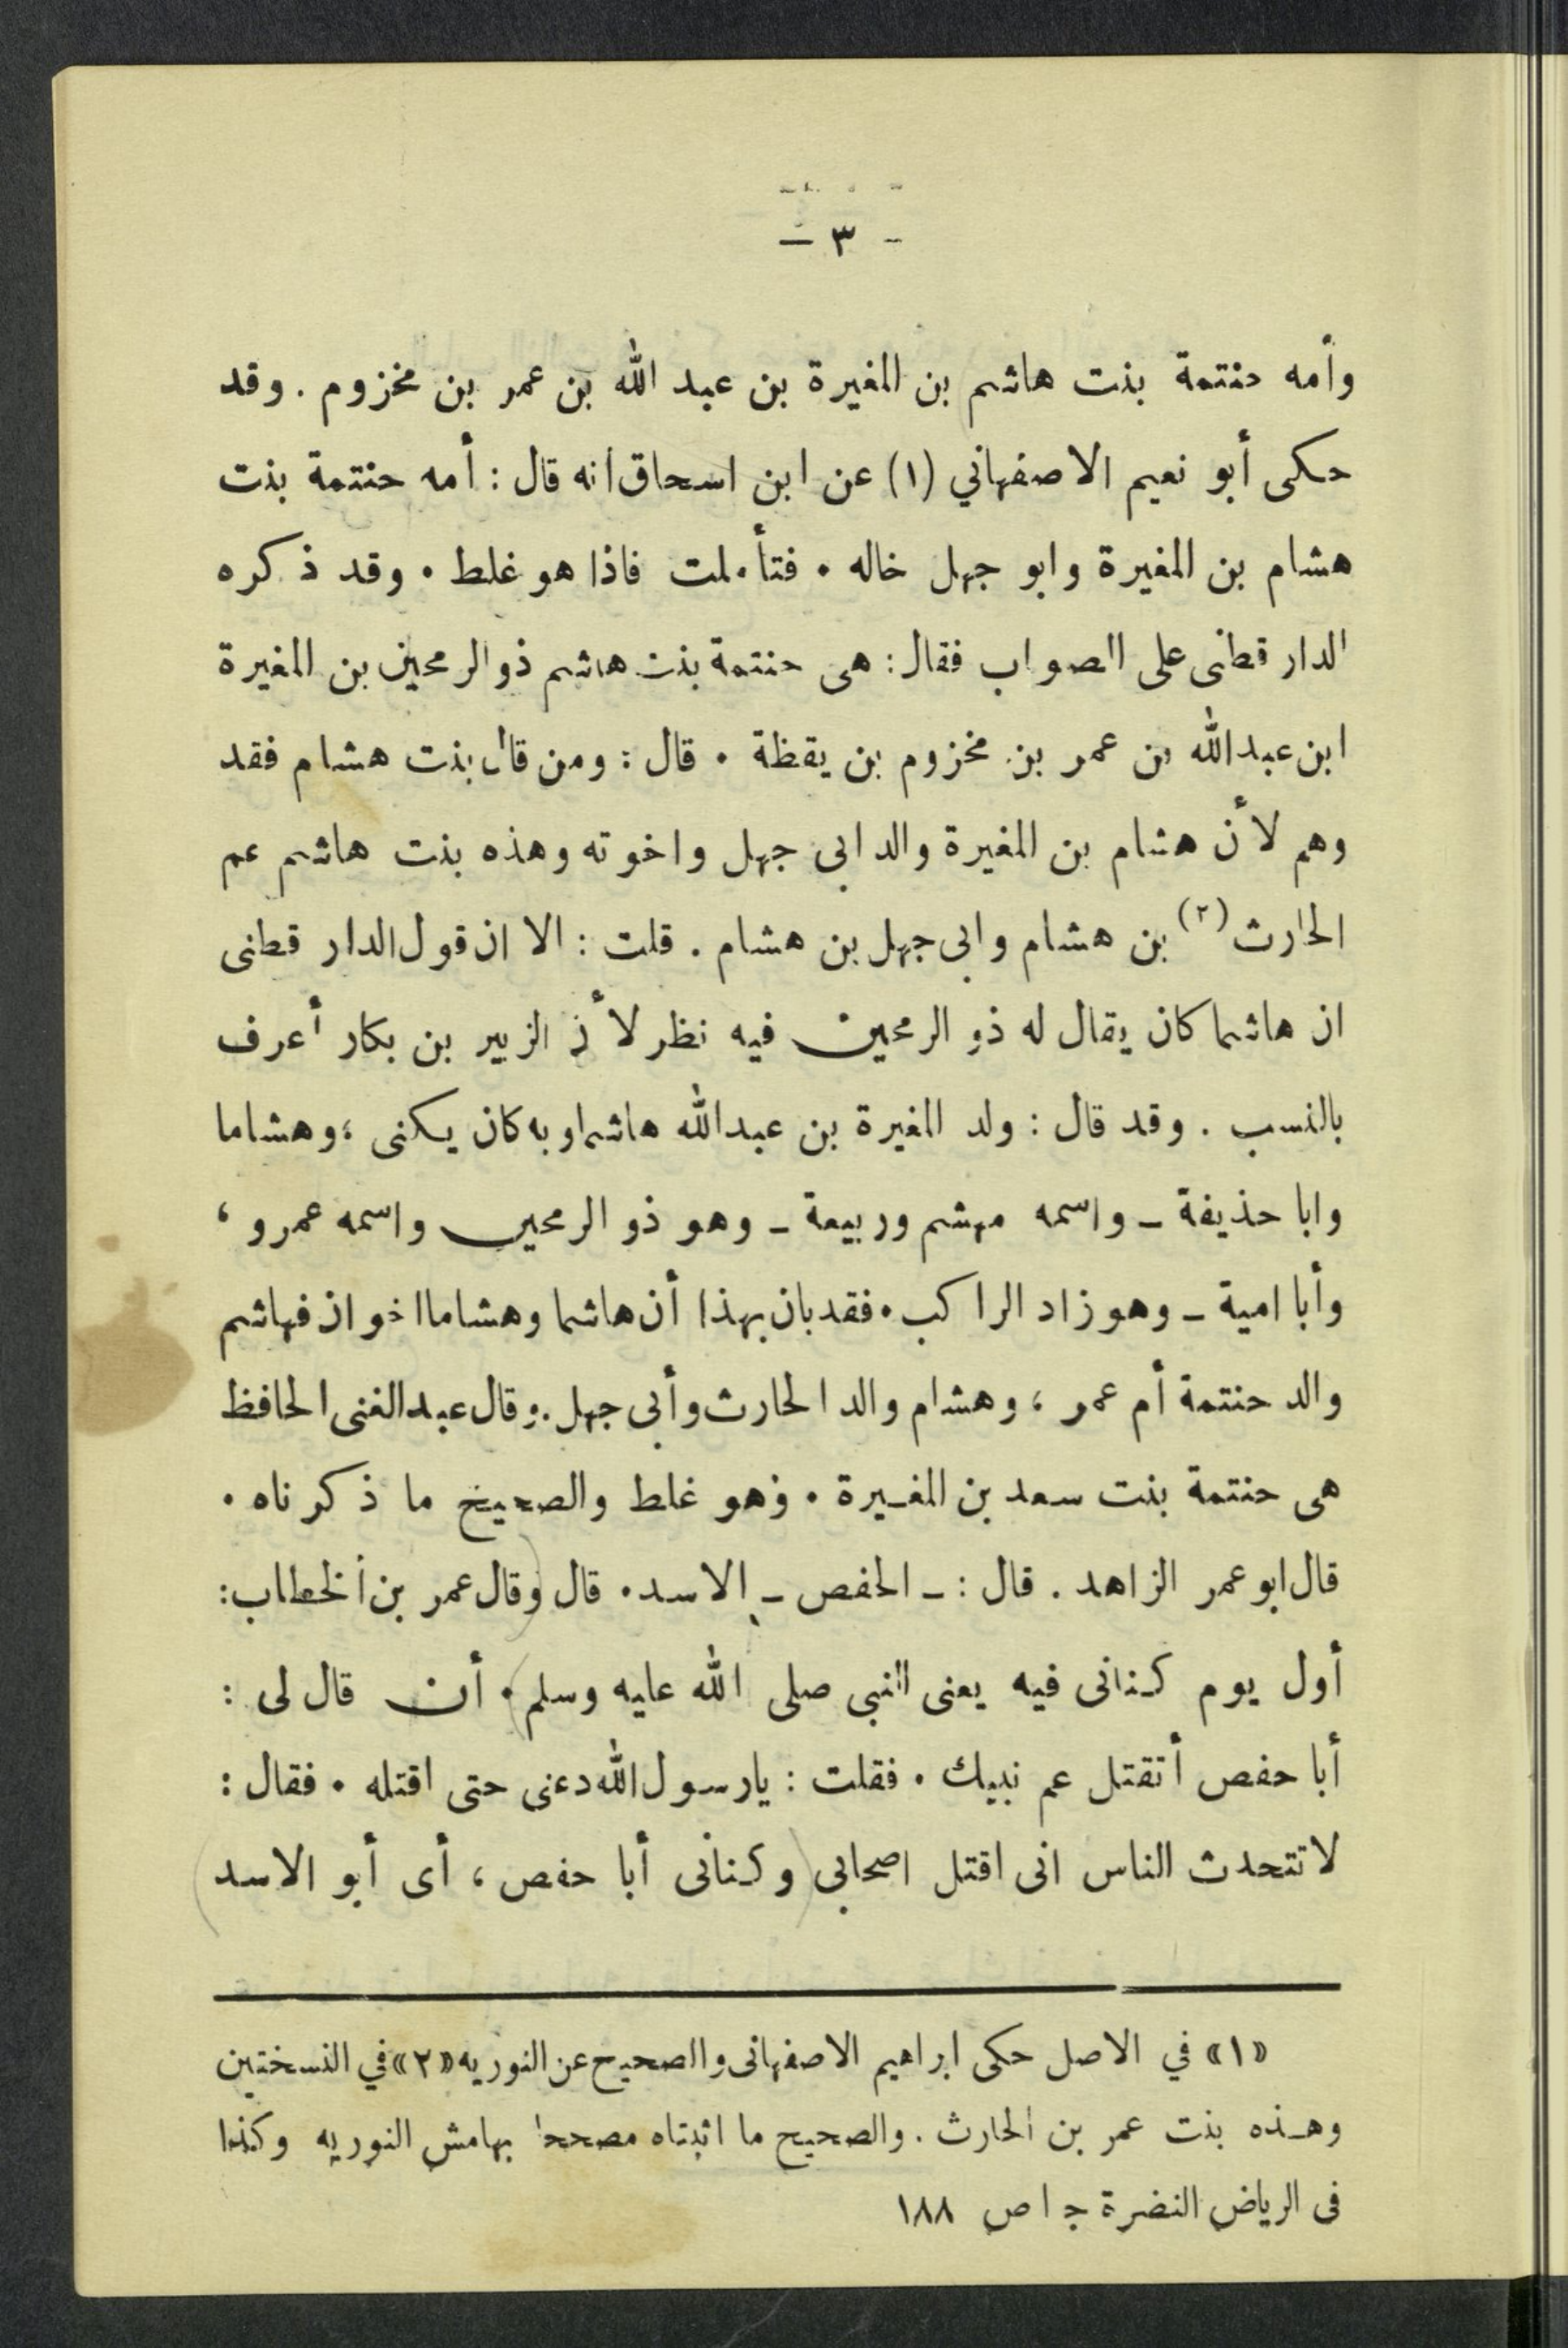 - ٣ -
وأمه حنتمة بنت هاشم بن المغيرة بن عبد الله بن عمر بن مخزوم . وقد
حكى أبو نعيم الاصفهاني (١) عن ابن اسحاق انه قال : أمه حنتمة بنت
هشام بن المغيرة وابو جهل خاله . فتأملت فاذا هو غلط . وقد ذكره
الدار قطنى على الصواب فقال : هى حنتمة بنت هاشم ذو الرمحين بن المغيرة
ابن عبدالله بن عمر بن مخزوم بن يقظة . قال : ومن قال بنت هشام فقد
وهم لأن هشام بن المغيرة والد ابى جهل واخوته وهذه بنت هاشم عم
الحارث (٢) بن هشام وابى جهل بن هشام . قلت : الا ان قول الدار قطنى
ان هاشما كان يقال له ذو الرمحين فيه نظر لأن الزبير بن بكار أعرف
بالنسب . وقد قال : ولد المغيرة بن عبدالله هاشما وبه كان يكنى ، وهشاما
وابا حذيفة ـ واسمه مهشم وربيعة ـ وهو ذو الرمحين واسمه عمرو ،
وأبا امية ـ وهو زاد الراكب . فقد بان بهذا أن هاشما وهشاما اخوان فهاشم
والد حنتمة أم عمر ، وهشام والد الحارث وأبى جهل . وقال عبد الغنى الحافظ
هى حنتمة بنت سعد بن المغيرة . وهو غلط والصحيح ما ذكرناه .
قال ابو عمر الزاهد . قال : ـ الحفص ـ الاسد . قال (وقال عمر بن الخطاب :
أول يوم كنانى فيه يعنى النبى صلى الله عليه وسلم) . أن قال لى :
أبا حفص أتقتل عم نبيك . فقلت : يارسول الله دعنى حتى اقتله . فقال :
لا تتحدث الناس انى اقتل اصحابى (وكنانى أبا حفص ، أى أبو الاسد)
«١» في الاصل حكى ابراهيم الاصفهانى والصحيح عن النوريه «٢» في النسختين
وهذه بنت عمر بن الحارث . والصحيح ما اثبتناه مصححا بهامش النوريه وكذا
فى الرياض النضرة ج ١ ص ١٨٨